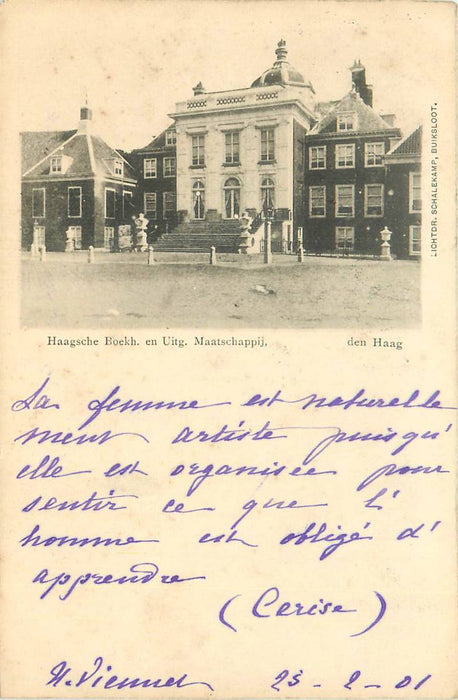 LICHTDR. SCHALEKAMP, BUIKSLOOT.
Haagsche Boekh. en Uitg. Maatschappij, den Haag
La femme est naturelle
ment artiste puisqu'
elle est organisée pour
sentir ce que l'
homme est obligé d'
apprendre
(Cerise)
H. Viennet 23 - 2 - 01